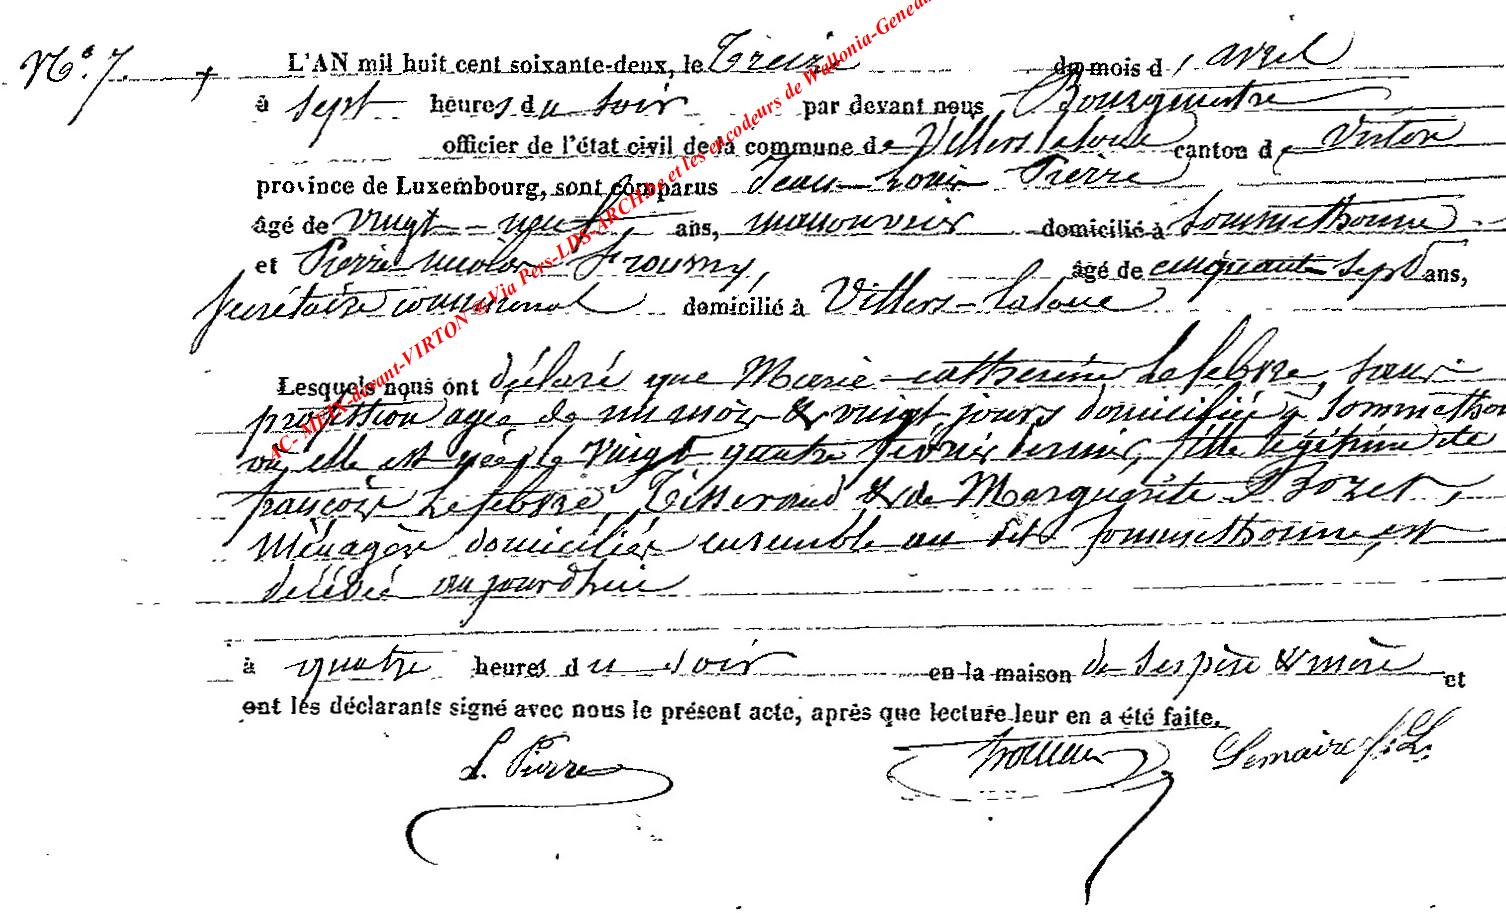 N°. 7. L'AN mil huit cent soixante-deux, le Treize du mois d'avril
à sept heures du soir par devant nous Bourgmestre
officier de l'état civil de la commune de Villers la loue canton de Virton
province de Luxembourg, sont comparus Jean-Louis Pierre
âgé de vingt-neuf ans, manouvrier domicilié à Sommethonne
et Pierre nicolas âgé de cinquante sept ans,
secrétaire communal domicilié à Villers-laloue
Lesquels nous ont déclaré que Marie-catherine Lefebvre, sans
profession agée de un mois & vingt jours domiciliée à Sommethon
où elle est née le vingt quatre février dernier, fille légitime de
françois Lefebvre, Tisserand & de Marguerite Bozet,
Ménagère domiciliés ensemble au dit sommethonne, est
décédée aujourd'hui
à quatre heures du soir en la maison de ses père & mère et
ont les déclarants signé avec nous le présent acte, après que lecture leur en a été faite.
L. Pierre Lemaire f.f.
AC- MEIX-devant-VIRTON ® Via Pers-LDS-ARCHbe et les encodeurs de Wallonia-Genea